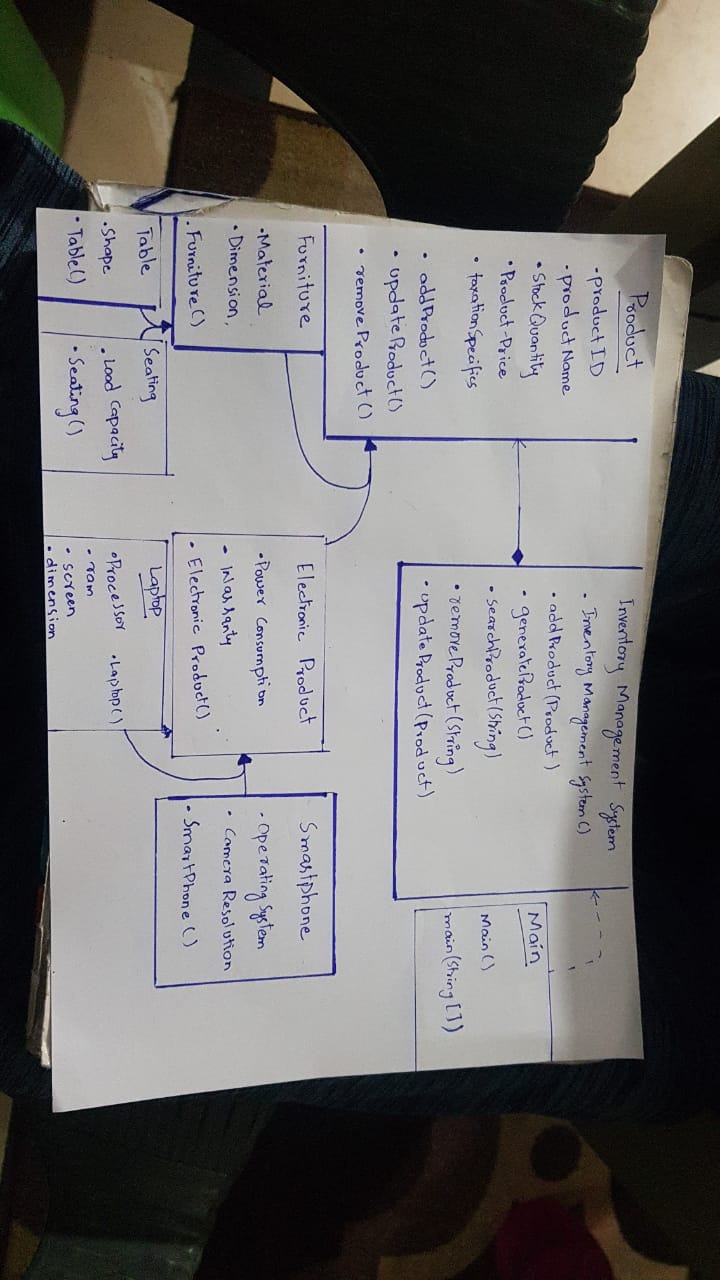 Product
• product ID
• product Name
• Stock Quantity
• Product-Price
• taxation Specifics
• add Product()
• update Product()
• remove Product()
Inventory Management System
• Inventory Management System()
• add Product (Product)
• generate Product()
• search Product (String)
• remove Product (String)
• update Product (Product)
Main
Main()
main (String [])
Furniture
• Material
• Dimension,
• Furniture()
Electronic Product
• Power Consumption
• Warranty
• Electronic Product()
Smartphone
• Operating System
• Camera Resolution
• SmartPhone()
Table
• Shape
• Table()
Seating
• Load Capacity
• Seating()
Laptop
• Processor • Laptop()
• ram
• screen
• dimension